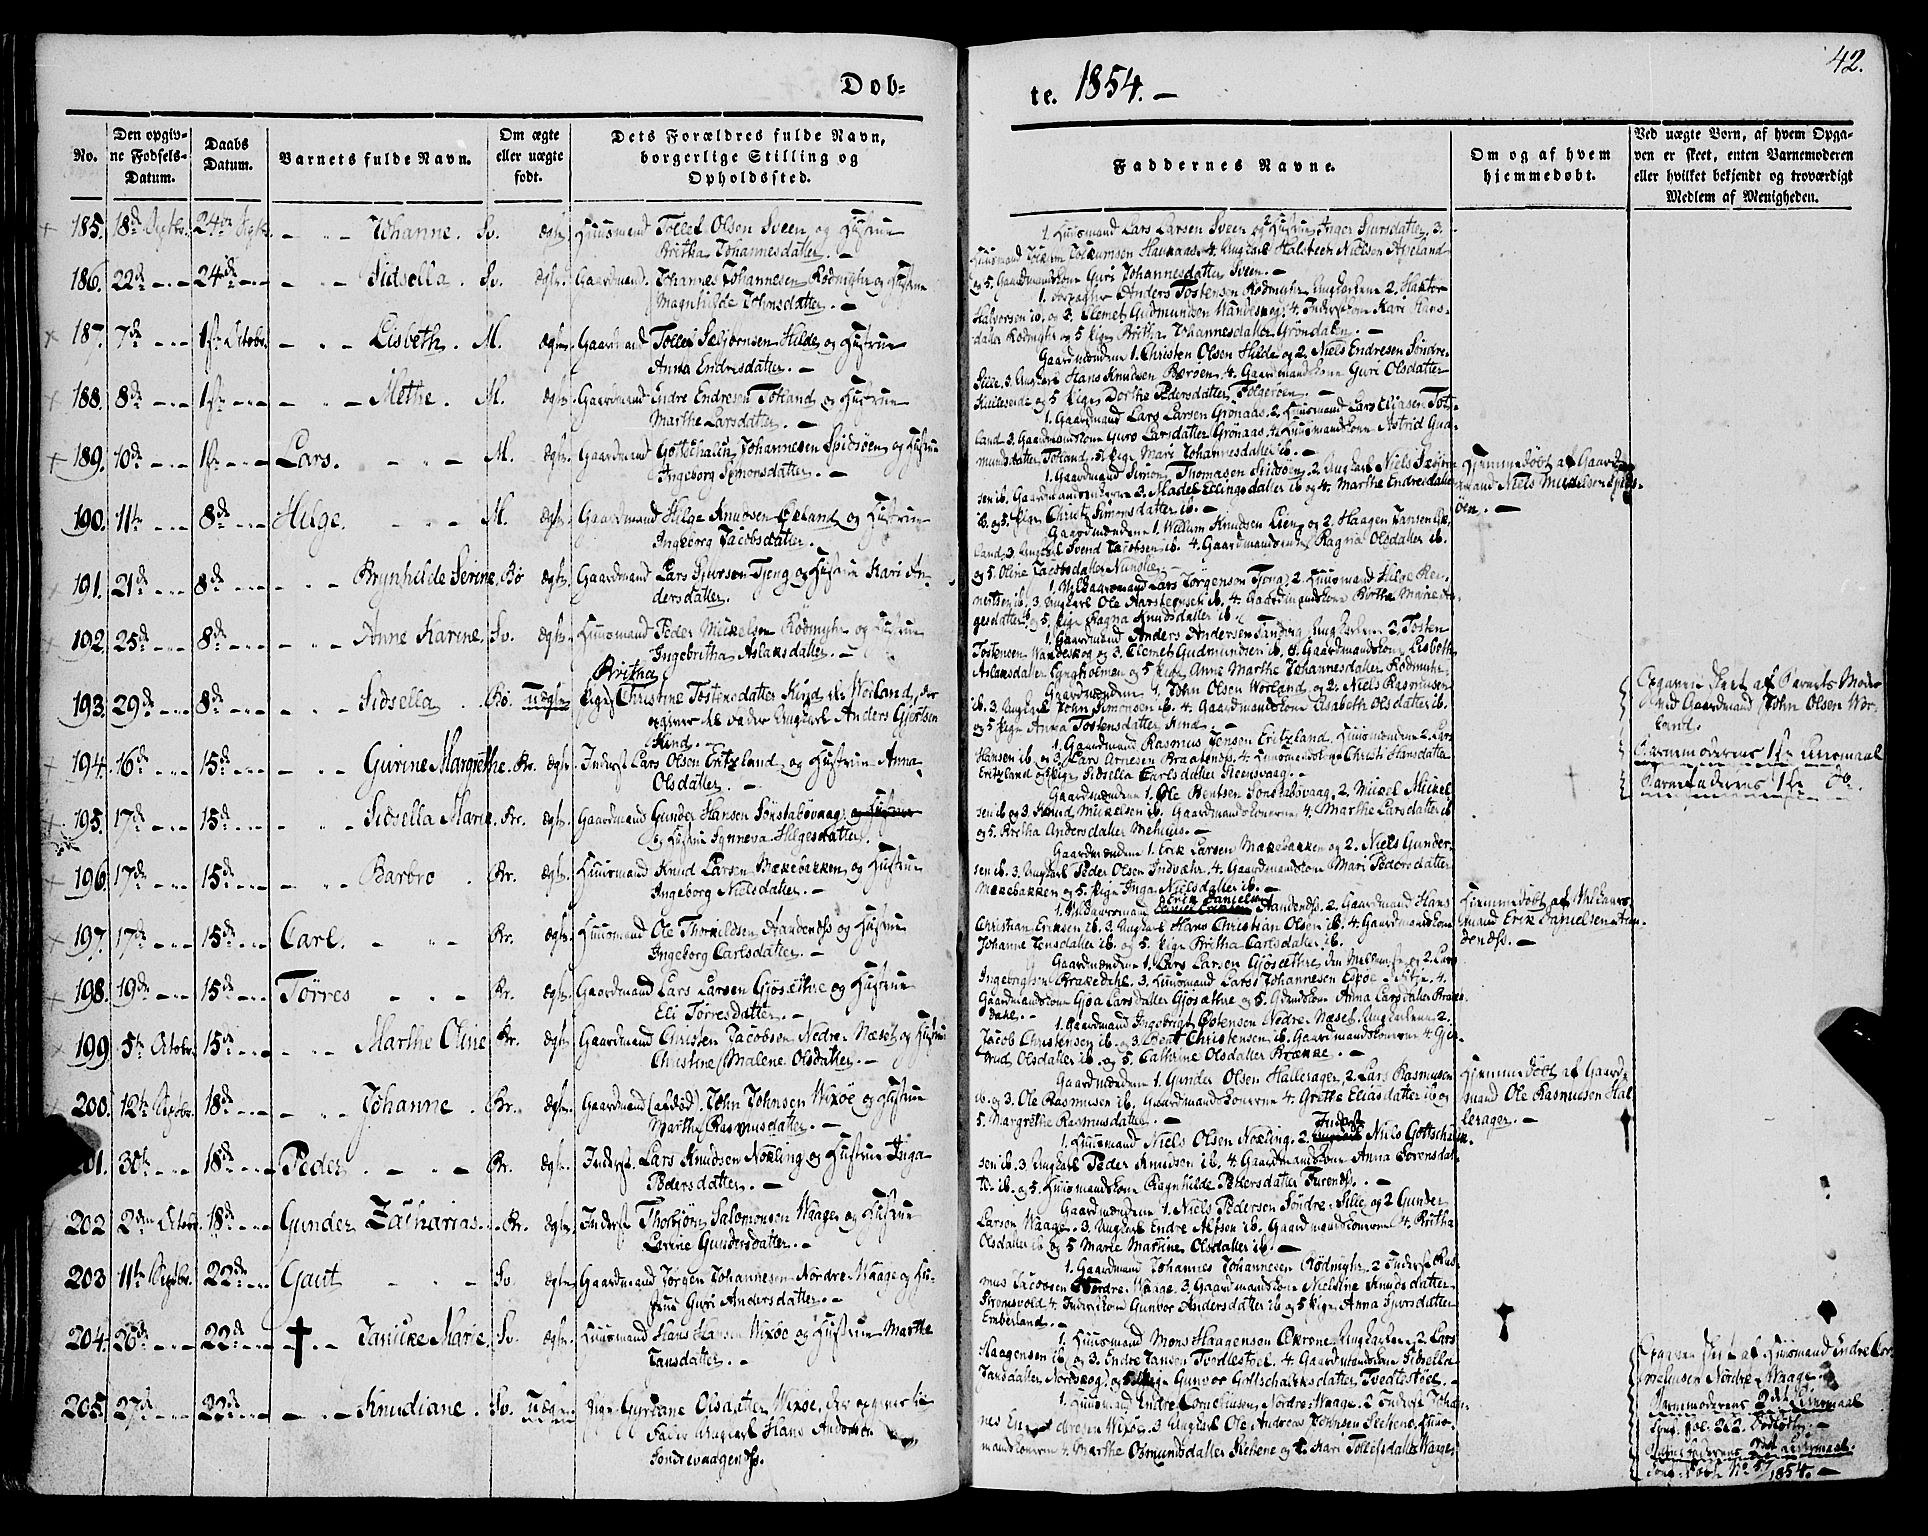 42.
Døb=
te. 1854. —
No.
Den opgiv-
ne Fødsels-
Datum.
Daabs
Datum.
Barnets fulde Navn.
Om ægte
eller uægte
født.
Dets Forældres fulde Navn,
borgerlige Stilling og
Opholdssted.
Faddernes Navne.
Om og af hvem
hjemmedøbt.
Ved uægte Børn, af hvem Opga-
ven er skeet, enten Barnemoderen
eller hvilket bekjendt og troværdigt
Medlem af Menigheden.
185. 18de Septbr. 24de Septbr. Johanne. Sv. Ægte. Huusmand Tollef Olsen Sveen og Hustrue
Britha Johannesdatter. —
1. Huusmand Lars Larsen Sveen 2 Hustrue Inger Sjursdatter, 3.
og 5. Gaardmandskone Guri Johannesdatter Sveen. —
186. 22de 24de Sidsella. Sv. Ægte. Gaardmand Johannes Johannesen Rødmyhr og Hustrue
Magnhilde Johnsdatter. —
1. Anders Tostensen Rødmyhr, Ungkarlene 2.
Halvorsen ib. og 3. Clemet Gudmundsen Wandeskog, 4. Kari Hans-
datter Rødmyhr og 5 Pige Britha Johannesdatter Grøndalen. —
187. 7de 1ste Octobr. Lisbeth. M. Ægte. Gaardmand Tollef Sæbjørnsen Hilde og Hustrue
Anna Endresdatter. —
Gaardmændene 1. Christen Olsen Hilde og 2. Niels Endresen Søndre-
Sille, 3. Ungkarl Hans Knudsen Børøen, 4. Gaardmandskone Guri Olsdatter
og 5 Pige Dorthe Pedersdatter Folgerøen. —
188. 8de 1ste Methe. M. Ægte. Gaardmand Endre Endresen Totland og Hustrue
Marthe Larsdatter. —
1. Gaardmand Lars Larsen Grønaas, 2. Huusmand Lars Eliasen Tot-
land 3. Gaardmandskone Guro Larsdatter Grønaas, 4. Huusmandskone Astrid Gud-
mundsdatter Totland, 5. Pige Mari Johannesdatter ib. —
189. 10de 1ste Lars. M. Ægte. Gaardmand Gottschalk Johannesen Spidsøen og Hustrue
Ingeborg Simonsdatter. —
1. Gaardmand Simon Thomasen Spidsøen, 2. Ungkarl Niels Sæbjørn-
sen ib. Gaardmandskonerne 3. Madel Ellingsdatter ib og 4. Marthe Endresdatter
ib. og 5. Pige Christi Simonsdatter ib. —
Hjemmedøbt af Gaard-
mand Niels Mikkelsen Spids-
øen. —
190. 11te 8de Helge. M. Ægte. Gaardmand Helge Knudsen Økland og Hustrue
Ingeborg Jacobsdatter. —
Gaardmændene 1. Willum Knudsen Lien og 2. Haagen Jansen Øk-
land, 3. Ungkarl Svend Jacobsen ib. 4. Gaardmandskone Ragna Olsdatter ib.
og 5. Oline Jacobsdatter
191. 21de 8de Brynhilde Serine. Bø Ægte. Gaardmand Lars Sjursen Tjeng og Hustrue Kari An-
dersdatter.
og 5. Pige Ragna Knudsdatter ib. —
192. 25de 8de Anne Karine. Sv. Ægte. Huusmand Peder Mikkelsen Rødmyhr og Hustrue
Ingebritha Aslaksdatter. —
1. Gaardmand Anders Andersen Ungkarlene 2. Tosten
Tostensen Wandeskog og 3. Clemet Gudmundsen ib. 4. Gaardmandskone Lisbeth
Aslaksdatter og 5 Pige Anne Marthe Johannesdatter Rødmyhr.
193. 29de 8de Sidsella. Bø. Uægte. Pige Britha Christine Tostensdatter Kind Worland, der
opgiver til Fader Ungkarl Anders Gjertsen
Kind. —
Gaardmændene 1. John Olsen Worland og 2. Niels Rasmusen
ib. 3. Ungkarl John Simonsen ib. 4. Gaardmandskone Lisabeth Olsdatter ib.
og 5 Pige Anna Tostensdatter Kind. —
Opgaven skeet af Barnets Moder
ved Gaardmand John Olsen Wor-
land.
Barnemoderens 1ste Leiermaal
Barnefaderens 1ste Do.
194. 16de 15de Gurine Margrethe. Br. Ægte. Inderst Lars Olsen Eritzland og Hustrue Anna
Olsdatter. —
1. Gaardmand Rasmus Jensen Eritzland. Huusmændene 2. Lars
Hansen ib og 3. Lars Arnesen 4. Huusmandskone Christi Hansdatter
Eritzland og Pige Sidsella Carlsdatter Steensvaag. —
195. 17de 15de Sidsella Marie. Br. Ægte. Gaardmand Gunder Hansen Sønstabøvaag
og Hustrue Synneva Helgesdatter.
Gaardmændene 1. Ole Bentsen Sønstabøvaag, 2. Mikel Mikel-
sen ib og 3. Knud Mikelsen ib. Gaardmandskonerne 4. Marthe Larsdatter ib
og 5. Britha Andersdatter Mehuus. —
196. 17de 15de Barbro. Br. Ægte. Huusmand Knud Larsen Mækebakken og Hustrue
Ingeborg Nielsdatter. —
Gaardmændene 1. Erik Larsen Mækebakken og 2. Niels Gunder-
sen ib. 3. Ungkarl Peder Olsen Indvær, 4. Gaardmandskone Mari Pedersdatter
Mækebakken og 5. Pige Inga Nielsdatter ib. —
197. 17de 15de Carl. Br. Ægte. Huusmand Ole Thorkildsen Aandends og Hustrue
Ingeborg Carlsdatter. —
1. Erik Danielsen Aandends. 2. Gaardmand Hans
Christian Eriksen ib. 3. Ungkarl Hans Christian Olsen ib. 4. Gaardmandskone
Johanne Jensdatter ib. og 5. Pige Britha Carlsdatter ib.
Hjemmedøbt af
mand Erik Danielsen Aan-
dends. —
198. 19de 15de Tørres Br. Ægte. Gaardmand Lars Larsen Gjøsæthre og Hustrue
Eli Tørresdatter. —
Gaardmændene 1. Lars Larsen Gjøsæthre og 2. Lars
Ingebrigtsen Brakedahl, 3. Huusmand Lars Johannesen Espøe 4.
Gaardmandskone Gjøa Larsdatter Gjøsæthre og 5. Anna Larsdatter Brake-
dale. —
199. 5te Octobr. 15de Marthe Oline Br. Ægte. Gaardmand Christen Jacobsen Nedre-Næset og Hustrue
Christine Malene Olsdatter. —
1. Gaardmand Ingebrigt Østensen Nedre-Næset, Ungkarlene 2.
Jacob Christensen ib. og 3. Bent Christensen ib. Gaardmandskonerne 4. Gje-
trud Olsdatter ib. og 5. Cathrine Olsdatter Brække. —
200. 12te Septbr. 18de Johanne. Br. Ægte. Gaardmand (afdød) John Johnsen Wixøe og Hustrue
Marthe Rasmusdatter. —
Gaardmændene 1. Gunder Olsen Hallerager, 2. Lars Rasmusen
ib. og 3. Ole Rasmusen ib. Gaardmandskonerne 4. Grethe Eliasdatter ib og
5. Margrethe Rasmusdatter —
Hjemmedøbt af Gaard-
mand Ole Rasmusen Hal-
lerager. —
201. 30te 18de Peder. Br. Ægte. Inderst Lars Knudsen Nøkling og Hustrue Inga
Pedersdatter. —
1. Huusmand Niels Olsen Nøkling. 2. Inderst Niels Gottschalk-
sen ib. 3. Ungkarl Peder Knudsen ib. 4. Gaardmandskone Anna Sørensdat-
ter ib. og 5. Huusmandskone Ragnhilde Pedersdatter —
202 2den Octobr. 18de Gunder Zacharias. Br. Ægte. Inderst Thorbjørn Salomonsen Waage og Hustrue
Lorine Gundersdatter. —
Gaardmændene 1. Niels Pedersen Søndre-Sille og 2 Gunder
Larsen Waage. 3. Ungkarl Endre Alfsen ib. Gaardmandskonerne 4. Britha
Olsdatter ib og 5 Marie Martine Olsdatter ib. —
203 11te Septbr. 22de Gaut Sv. Ægte. Gaardmand Jørgen Johannesen Nordre-Waage og Hu-
strue Guri Andersdatter. —
1. Gaardmand Johannes Johannesen Rødmyhr. 2 Inderst Ras-
mus Jacobsen Nordre-Waage. 3 Gaardmandskone Nielsine Knudsdatter
Strømsvold 4. Gunvor Andersdatter ib og 5 Pige Anna Sjursdatter
Emberland. —
204. 26de 22de Janicke Marie. Sv. Ægte. Huusmand Hans Hansen Wixøe og Hustrue Marthe
Jansdatter. —
1. Huusmand Mons Haagensen Økrone, Ungkarlene 2. Lars
Haagensen ib og 3. Endre Jansen Tvedtestøel. 4 Gaardmandskone Sidsella
Jansdatter Nordskog og Gunvor Gottschalksdatter Tvedtestøel. —
205. 27de 22de Knudiane. Sv. Uægte. Pige Gurine Olsdatter Wixøe, der opgiver til
Fader Ungkarl Hans Andersen
1. Huusmand Endre Corneliusen, Nordre-Waage. 2 Inderst Johan-
nes Endresen Wixøe. 3 Ungkarl Ole Andreas Johnsen Stehene. Huus-
mandskonerne 4. Marthe Osmundsdatter Stehene og Kari Tollefsdatter Waage.
Opgaven skeet af Huusmand Endre Cor-
neliusen Nordre-Waage.
Barnemoderens 2det Leiermaal
Barnefaderens Leiermaal.
1854. —